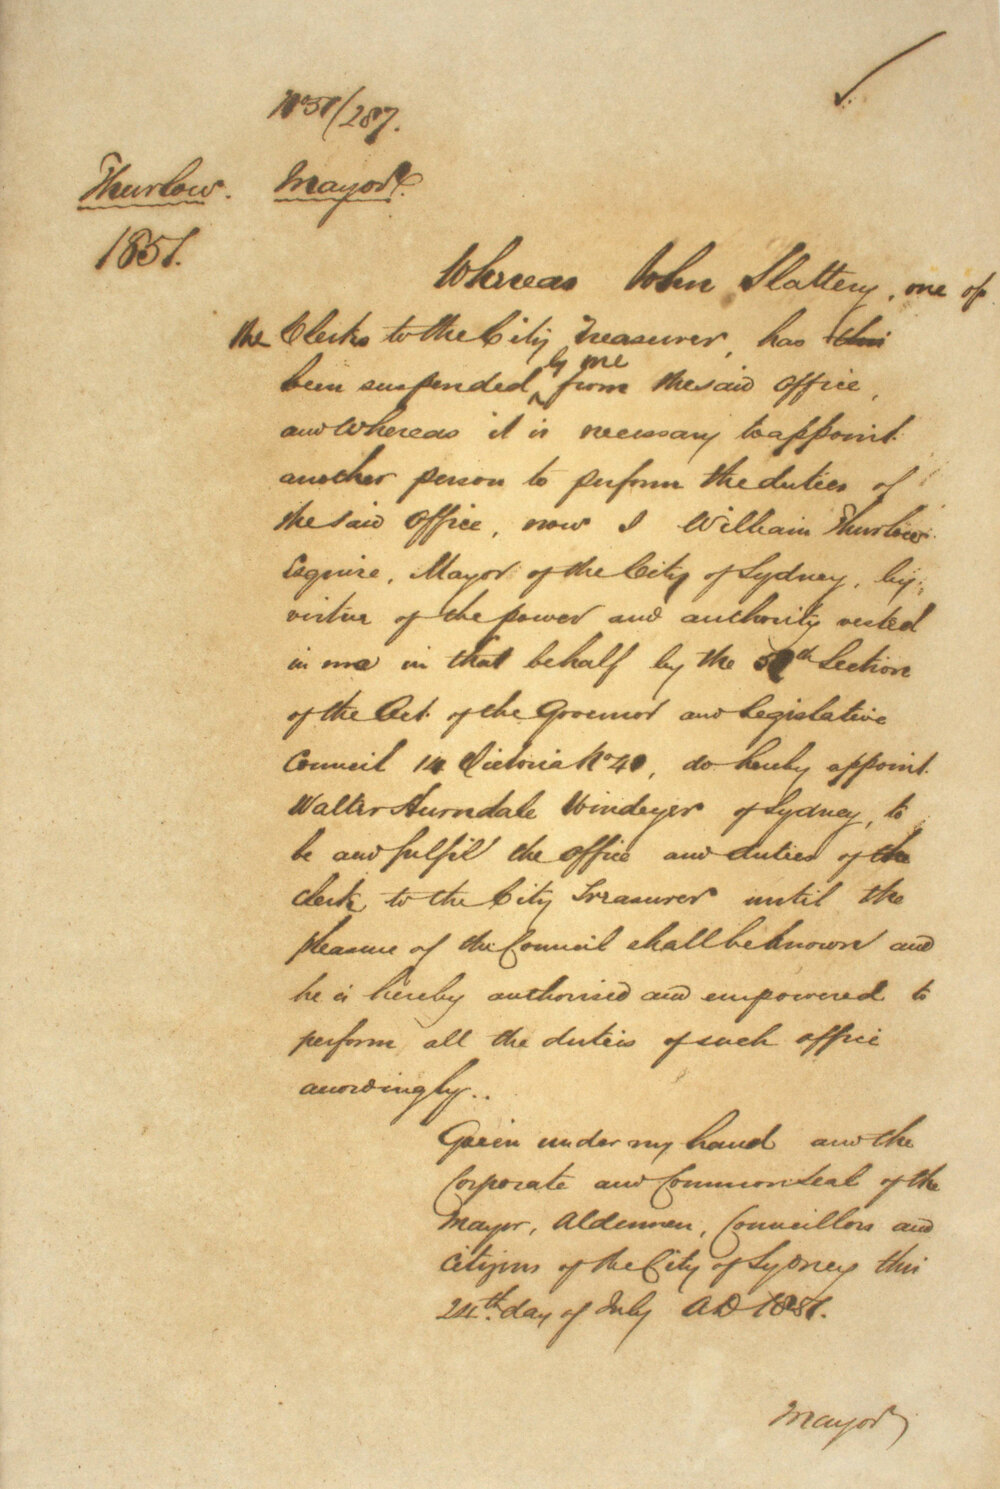 No 51/287.
Thurlow. Mayor.
1851.
Whereas John Slattery, one of
the Clerks to the City Treasurer, has this
by me
been suspended from the said Office,
and Whereas it is necessary to appoint
another person to perform the duties of
the said Office, now I William Thurlow
Esquire, Mayor of the City of Sydney, by
virtue of the power and authority vested
in me in that behalf by the Section
of the Act of the Governor and Legislative
Council 14 Victoria No 41, do hereby appoint
Walter Windeyer of Sydney, to
be and fulfil the office and duties of the
clerk to the City Treasurer until the
pleasure of the Council shall be known and
he is hereby authorised and empowered to
perform all the duties of such office
accordingly..
Given under my hand and the
Corporate and Common Seal of the
Mayor, Aldermen, Councillors and
Citizens of the City of Sydney this
24th day of July AD 1851.
Mayor